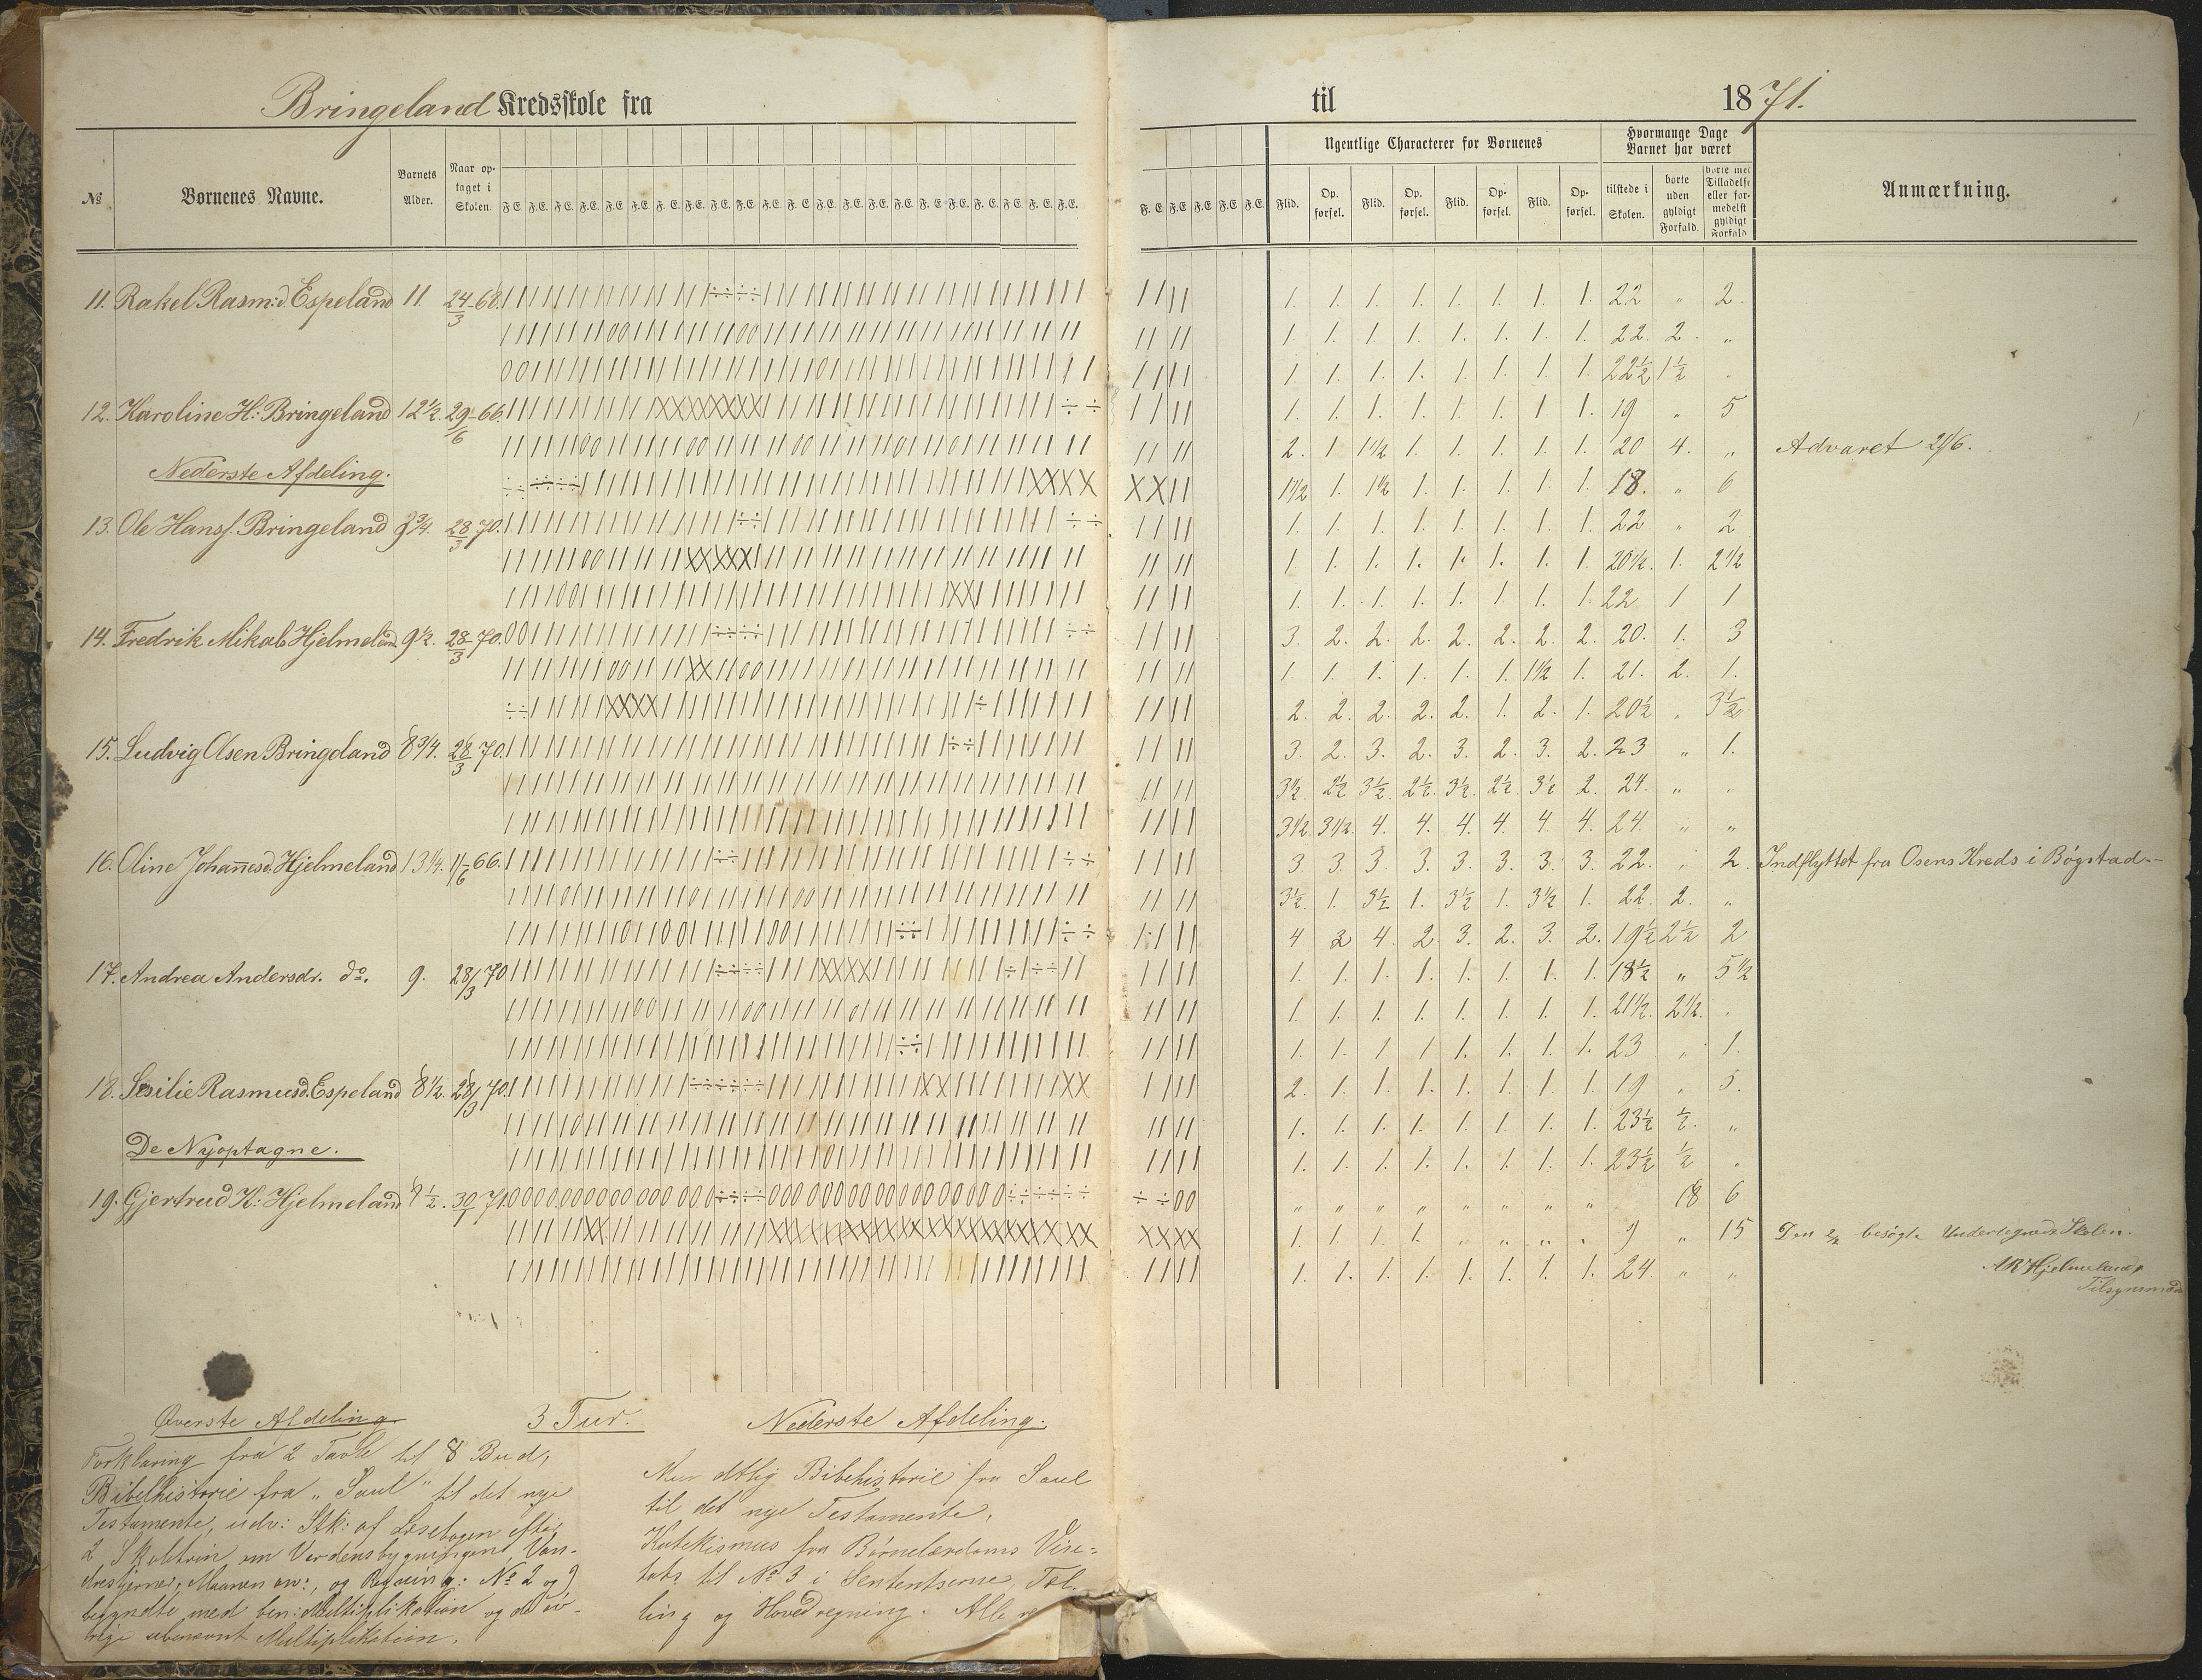 Bringeland Kredsskole fra til 1871.
№ Børnenes Navne. Barnets Alder. Naar optaget i Skolen. F.E. F.E. F.E. F.E. F.E. F.E. F.E. F.E. F.E. F.E. F.E. F.E. F.E. F.E. F.E. F.E. F.E. F.E. F.E. F.E. F.E. F.E. F.E. F.E. F.E. F.E. F.E.
Ugentlige Characterer for Børnenes
Flid. Opførsel. Flid. Opførsel. Flid. Opførsel. Flid. Opførsel.
Hvormange Dage Barnet har været
tilstede i Skolen. borte uden gyldigt Forfald. borte med Tilladelse eller formedelst gyldigt Forfald
Anmærkning.
11. Rakel Rasm:d Espeland 11. 24/3 68. 1. 1. 1. 1. 1. 1. 1. 1. 22 „ 2.
1. 1. 1. 1. 1. 1. 1. 1. 22. 2. „
1. 1. 1. 1. 1. 1. 1. 1. 22½ 1½
12. Karoline H: Bringeland 12½. 29/6 66. 1. 1. 1. 1. 1. 1. 1. 1. 19 „ 5
2. 1 1½ 1. 1. 1. 1. 1. 20 4. „ Advaret 21/6.
Nederste Afdeling.
1½ 1. 1½ 1. 1. 1. 1. 1. 18. „ 6
13. Ole Hanss. Bringeland 9¾. 28/3 70. 1. 1. 1. 1. 1. 1. 1. 1. 22 „ 2
1. 1. 1. 1. 1. 1. 1. 1. 20½. 1. 2½
1. 1. 1. 1. 1. 1. 1. 1. 22 1 1
14. Fredrik Mikals Hjelmeland 9½. 28/3 70. 3. 2. 2. 2. 2. 2. 2. 2. 20. 1. 3
1. 1. 1. 1. 1. 1. 1½ 1. 21. 2. 1.
2. 2. 2. 2. 2. 1. 2. 1. 20½ „ 3½
15. Ludvig Olsen Bringeland 8¾. 28/3 70. 3. 2. 3. 2. 3. 2. 3. 2. 23 „ 1.
3½. 2½ 3½. 2½. 3½. 2½. 3½ 2. 24. „ „
3½. 3½. 4. 4. 4. 4. 4. 4. 24. „ „
16. Oline Johannesd. Hjelmeland 13¼. 11/6 66. 3. 3. 3. 3. 3. 3. 3. 3. 22. „ 2. Indflyttet fra Osens Kreds i Bøgstad.
3½. 1. 3½ 1. 3½ 1. 3½ 1. 22. 2. „
4 2 4. 2. 3. 2. 3. 2. 19½ 2½ 2
17. Andrea Andersdr. do. 9. 28/3 70 1. 1. 1. 1. 1. 1. 1. 1. 18½ „ 5½
1. 1. 1. 1. 1. 1. 1. 1. 21½. 2½. „
1. 1. 1 1 1. 1. 1. 1. 23 „ 1.
18. Sesilie Rasmusd. Espeland 8½. 28/3 70. 2. 1. 1. 1. 1. 1. 1. 1. 19 „ 5.
1. 1. 1. 1. 1. 1. 1. 1. 23½ ½. „
De Nyoptagne.
1. 1. 1. 1. 1. 1. 1. 1. 23½ ½ „
19. Gjertrud H: Hjelmeland 30/1 71. „ „ „ „ „ „ „ „ 18 6
1. 1. 1. 1. „ „ „ „ 9 „ 15 Den besøgte Undertegnede Skolen.
1. 1. 1. 1. 1. 1. 1. 1. 24. „ „ AR Hjelmeland
Tilsynsmand
Øverste Afdeling 3 Tur. Nederste Afdeling.
Forklaring fra 2 Tavle til 8 Bud,
Bibelhistorie fra „Saul" til det nye
Testamente, udv: Stk: af Læsebogen efter
2 Skoletrin om Verdensbygningen, Van-
drestjerner, Maanen osv:, og Regning: № 2 og 9
begyndte med ben: Multiplikation og de øv-
rige ubenævnt Multiplikation.
Mundtlig Bibelhistorie fra Saul
til det nye Testamente.
Katekismus fra Børnelærdoms Vise-
til № 3 i Sententserne, Tal-
ling og Hovedregning. Alle